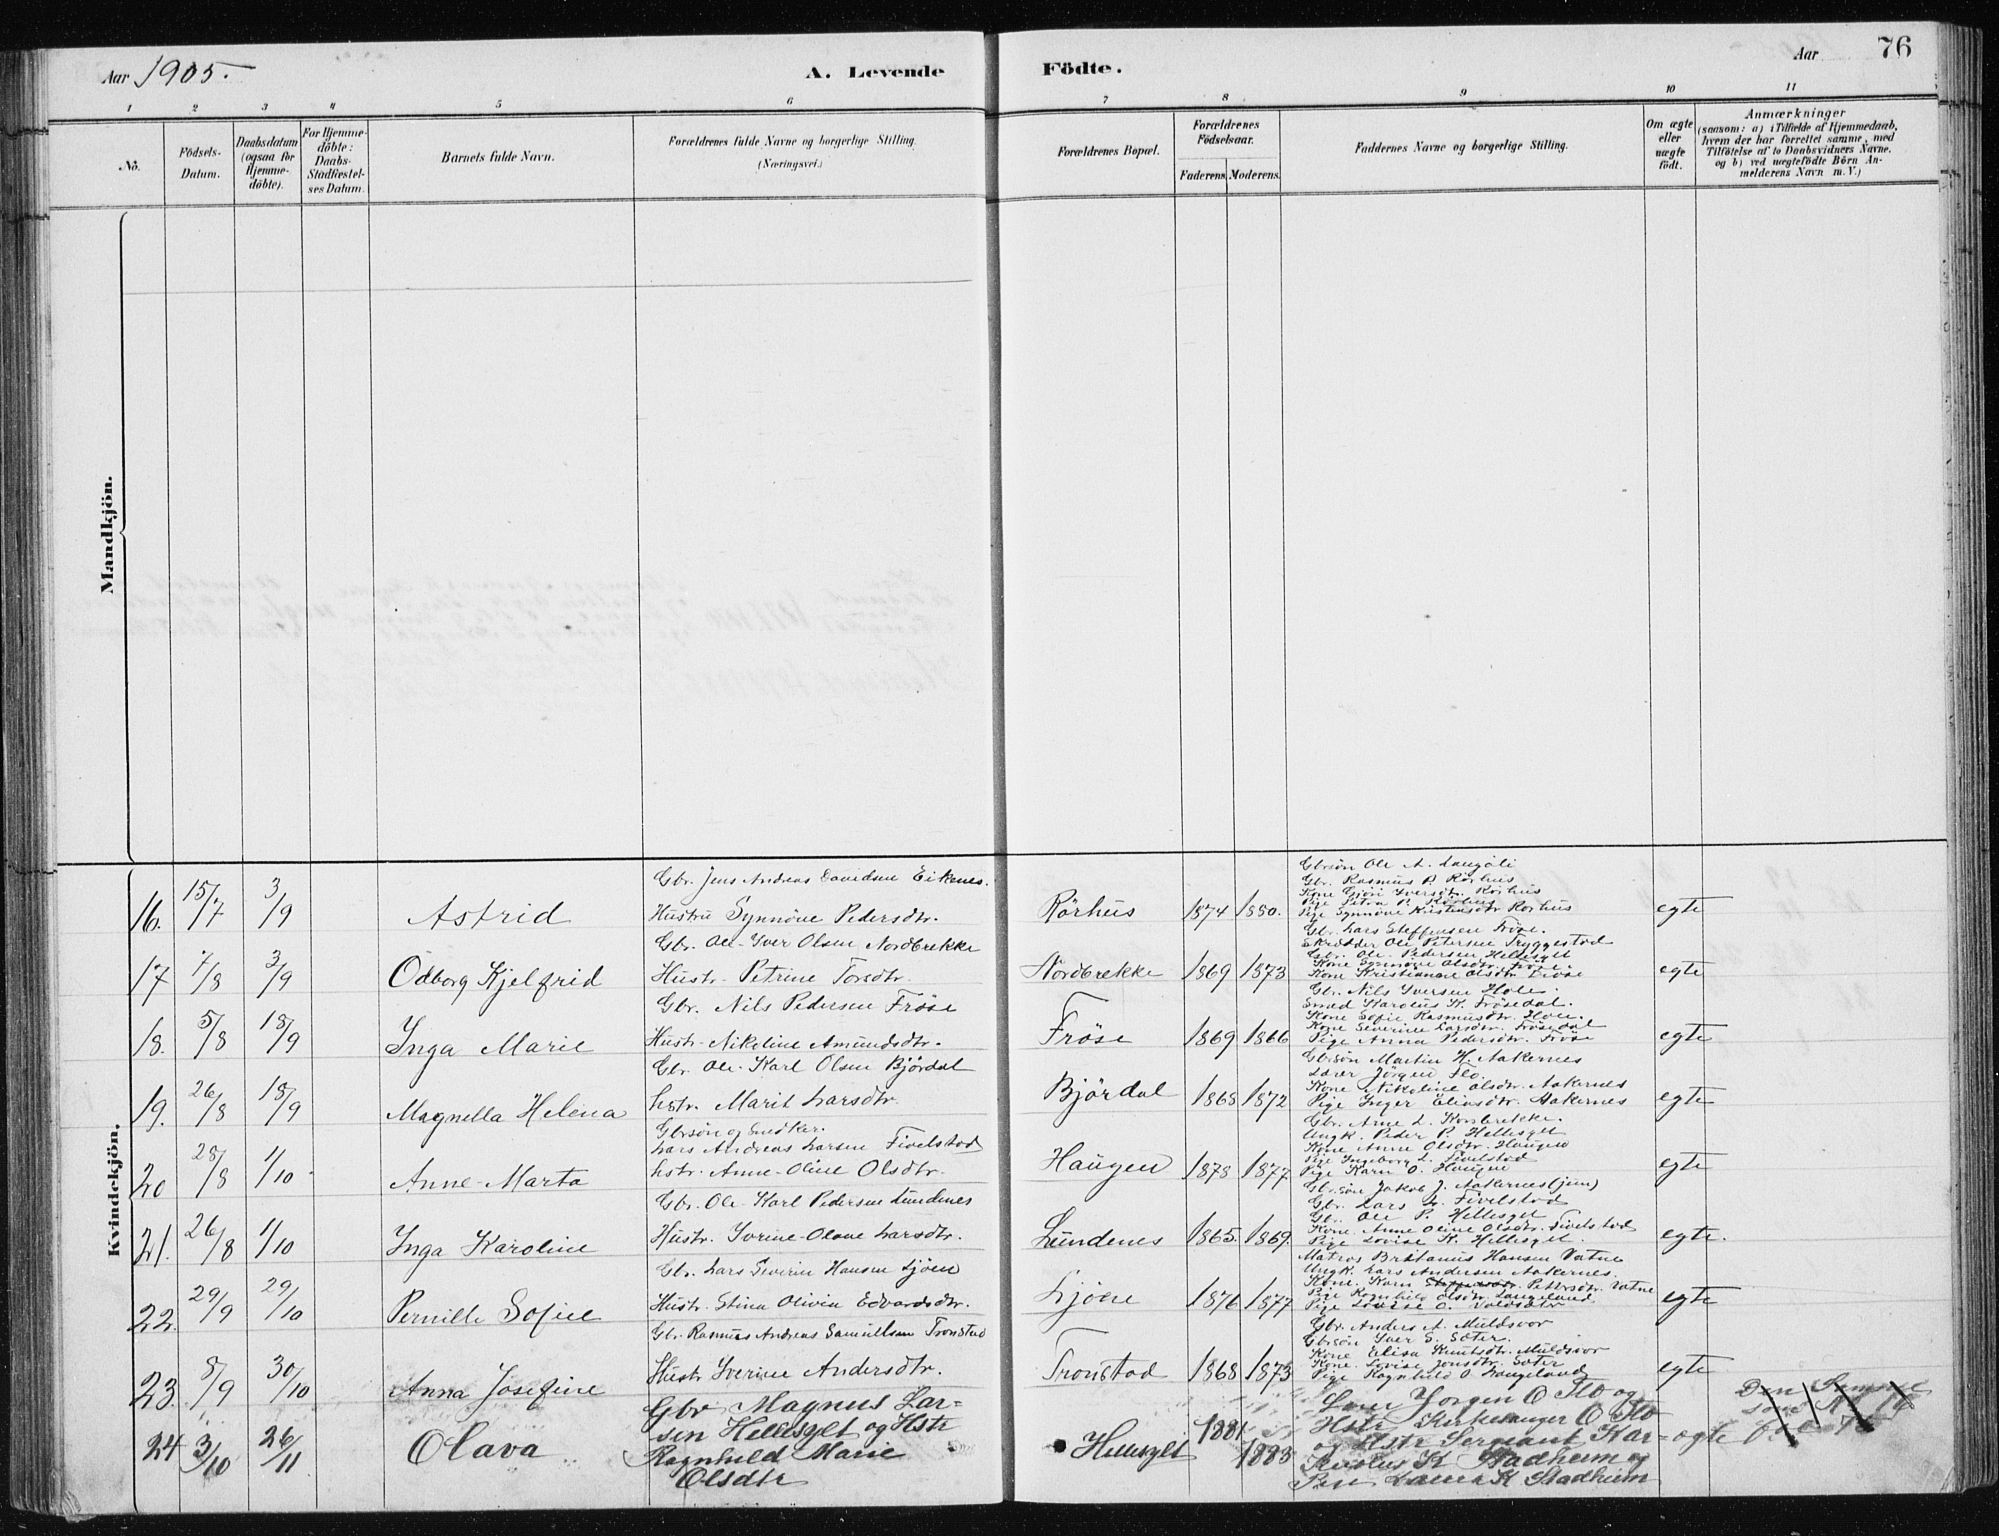 Aar 1905.
A. Levende
Födte.
Aar
76
1 2 3 4 5 6 7 8 9 10 11
No.
Födsels-Datum.
Daabsdatum (ogsaa for Hjemmedöbte).
For Hjemmedöbte: Daabs-Stadfæstelses Datum.
Barnets fulde Navn.
Forældrenes fulde Navne og borgerlige Stilling.
(Næringsvei.)
Forældrenes Bopæl.
Forældrenes Födselsaar.
Faderens. Moderens.
Faddernes Navne og borgerlige Stilling.
Om ægte eller uægte födt.
Anmærkninger
(saasom: a) i Tilfælde af Hjemmedaab, hvem der har forrettet samme, med Tilföielse af to Daabsvidners Navne. og b) ved uægtefödte Börn Anmelderens Navn m. V.)
Mandkjön.
Kvindekjön.
16. 15/7 3/9 Astrid
Gbr. Jens Andreas Davidsen Eikenes.
Hustru Synnöve Pedersdtr.
Rörhus 1874 1880.
Gbrsön Ole A. Langöli
Gbr. Rasmus P. Rörhus
Kone Gjöri Iversdtr. Rörhus
Pige Petra P. Rörhus
Pige Synnöve Kristensdtr Rörhus
egte
17 7/8 3/9 Odborg Kjelfrid
Gbr. Ole-Iver Olsen Nordbrekke
Hustr. Petrine Torsdtr
Nordbrekke 1869 1873
Gbr. Lars Steffensen Fröse.
Skrædder Ole Petersen Tryggestad
Gbr. Ole Pedersen Hellesylt
Kone Synnöve Olsdtr. Fröse.
Kone Kristianne Olsdtr Fröse
egte
18. 5/8 18/9 Inga Marie
Gbr. Nils Pedersen Fröse
Hustr. Nikoline Amundsdtr.
Fröse 1869 1866
Gbr. Nils Iversen Hole.
Smed Karolus K. Frösedal.
Kone Sofie Rasmusdtr. Hole.
Kone Severine Larsdtr. Frösedal
Pige Anna Pedersdtr. Fröse
egte
19. 26/8 18/9 Magnella Helena
Gbr. Ole-Karl Olsen Björdal
hstr. Marit Larsdtr.
Björdal 1868 1872
Gbrsön Martin H. Aakernes
Lærer Jörgen Flo.
Kone Nikoline Olsdtr. Aakernes
Pige Inger Eliasdtr. Aakernes
egte
20 28/8 1/10 Anne-Marta
Gbrsön og Snedker.
Lars Andreas Larsen Fivelstad
hstr. Anne-Oline Olsdtr.
Haugen 1878 1877
Gbr. Arne L. Korsbrekke.
Ungk. Peder P. Hellesylt
Kone Anne Olsdtr. Haugen
Pige Ingeborg L. Fivelstad
Pige Karn O. Haugen
egte
21. 26/8 1/10 Inga Karoline
Gbr. Ole-Karl Pedersen Lundenes
Hustr. Ivrine-Olave Larsdtr.
Lundenes 1865. 1869.
Gbrsön Jakob J. Aakernes (jun)
Gbr. Lars L. Fivelstad
Gbr. Ole P. Hellesylt
Kone Anne Oline Olsdtr. Fivelstad
Pige Lovise K. Hellesylt.
egte.
22. 29/9 29/10 Pernille Sofie
Gbr. Lars Severin Hansen Ljöen
Hustr. Stina Olivia Edvardsdtr.
Ljöen 1876 1877
Matros Britanus Hansen Vatne
Ungk. Lars Andersen Aakernes.
Kone. Karn Pettersdtr. Vatne
Pige Ragnhild Olsdtr. Langeland
Pige Lovise O. Voldsæter
egte
23. 8/9 30/10 Anna Josefine
Gbr. Rasmus Andreas Samuelsen Tronstad
Hustr Iverine Andersdtr.
Tronstad 1868 1873
Gbr. Anders A. Muldsvor
Gbrsön Iver S. Sæter.
Kone Elisa Knutsdtr. Muldsvor
Kone. Lovise Jonsdtr. Sæter
Pige Ragnhild O. Langeland
egte
24 3/10 26/11 Olava
Gbr Magnus Lar-
sen Hellesylt og Hstr
Ragnhild Marie
Olsdtr
Hellesylt 1881 1883
Lærer Jörgen O Flo og
Hstr Kirkesanger O Flo
og Hstr Sergeant Kar-
K Stadheim og
Pige Laura K Stadheim
egte
Den Samme
som